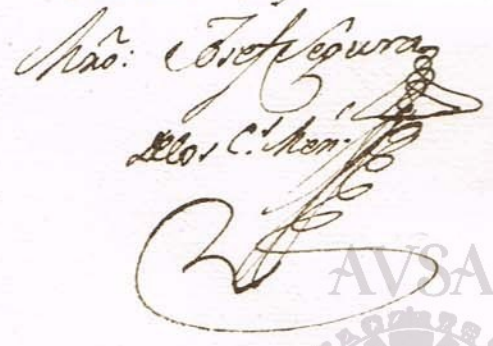 Mrō: Josef Segura
Delos C.s Men.s
AVSA